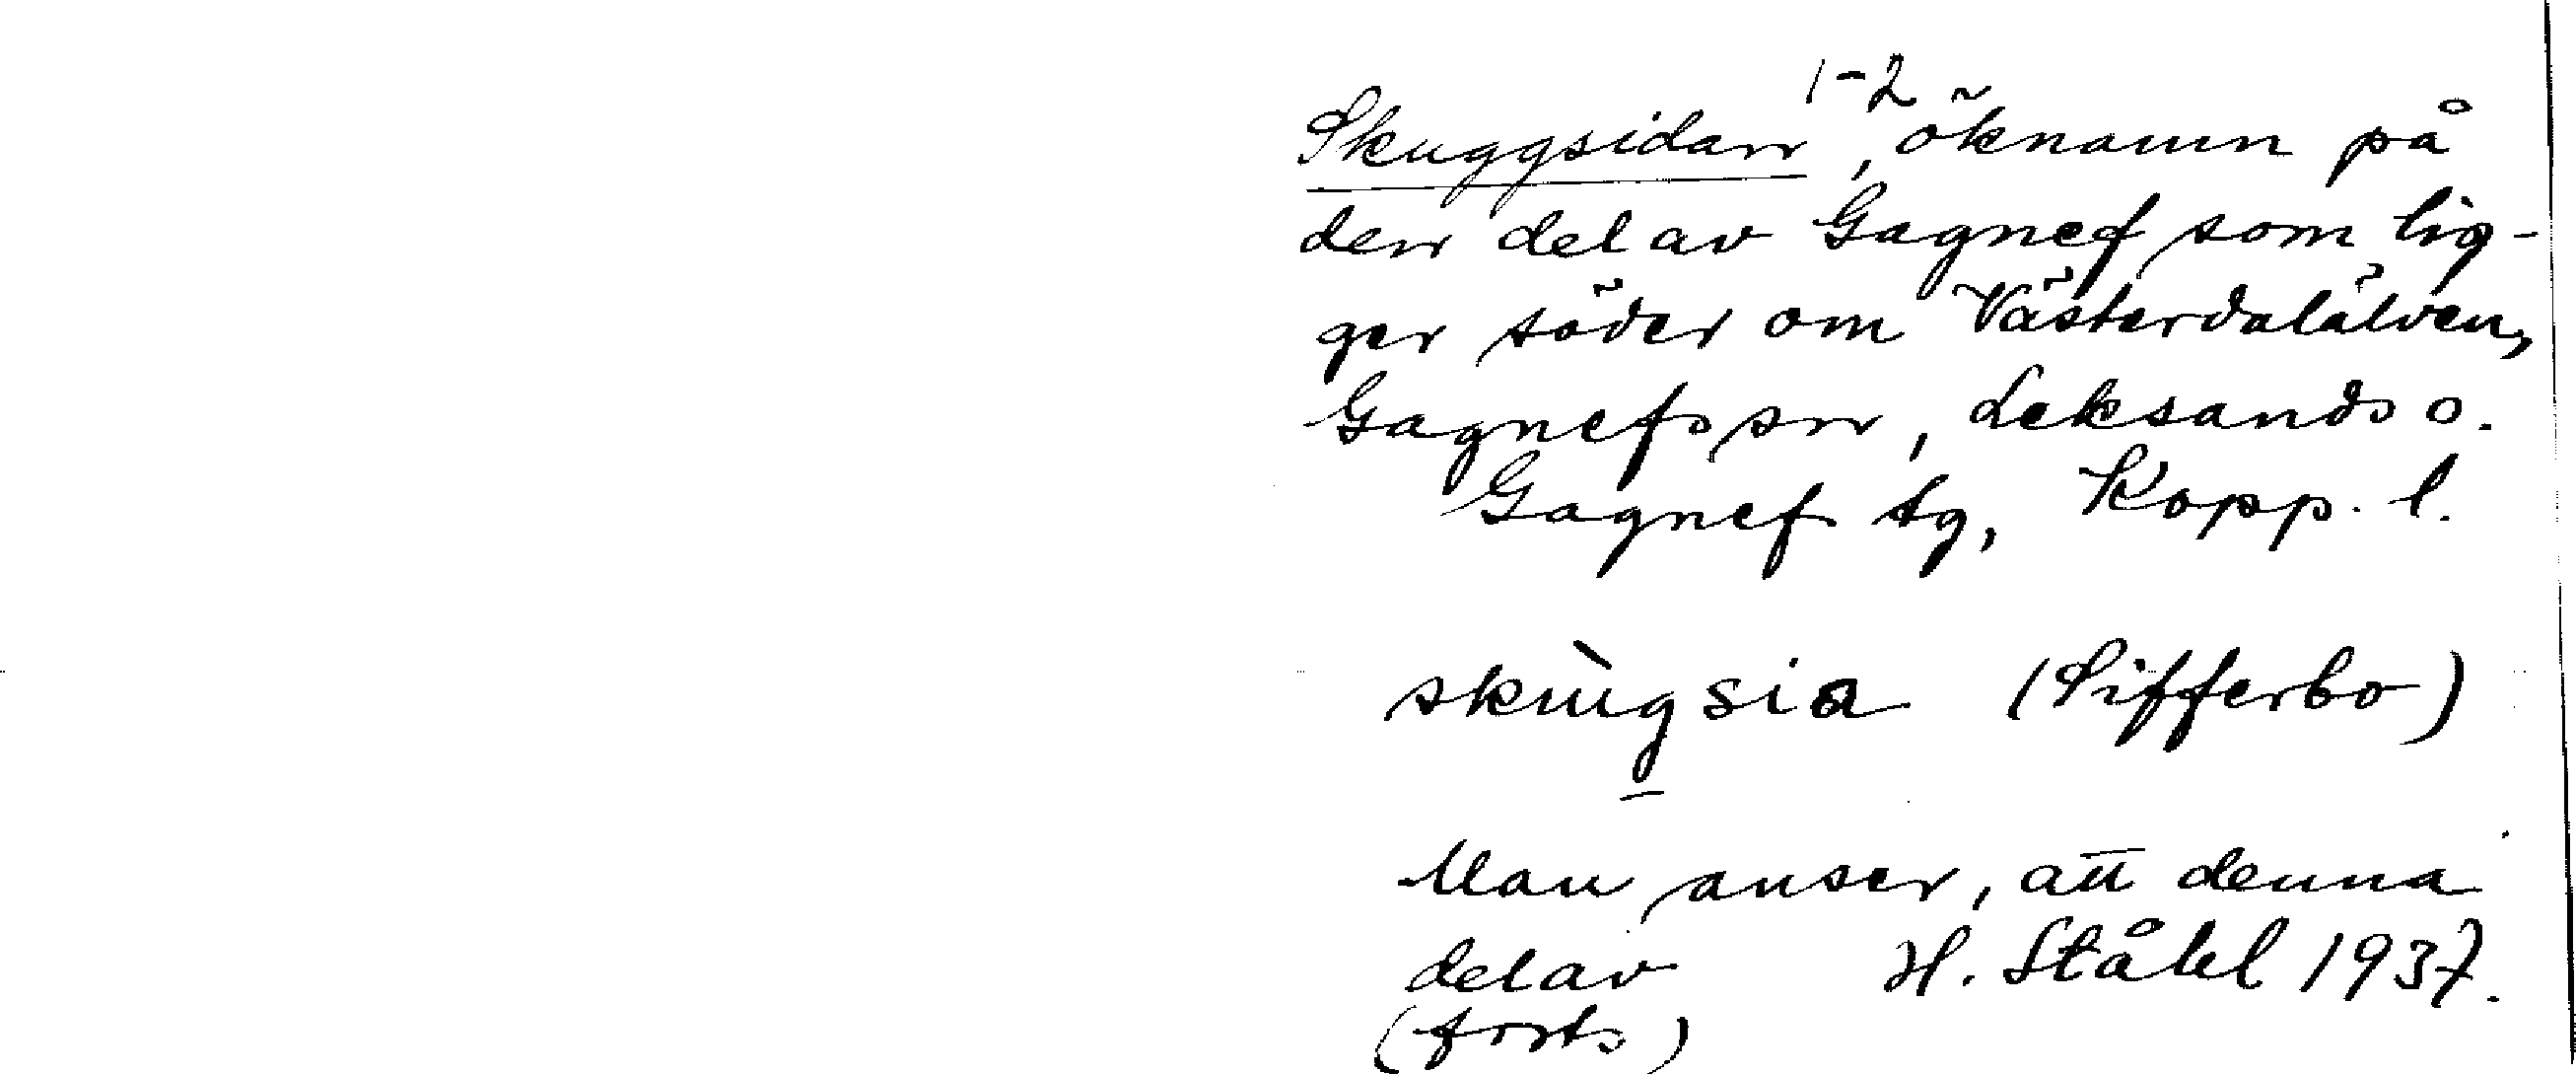 1-2
Skuggsidan, öknamn på
den del av Gagnef som lig-
ger söder om Västerdalälven,
Gagnefs sn, Leksands o.
Gagnef tg, Kopp. l.
skùgsia (Sifferbo)
Man anser, att denna
del av H. Ståhl 1937.
(forts)